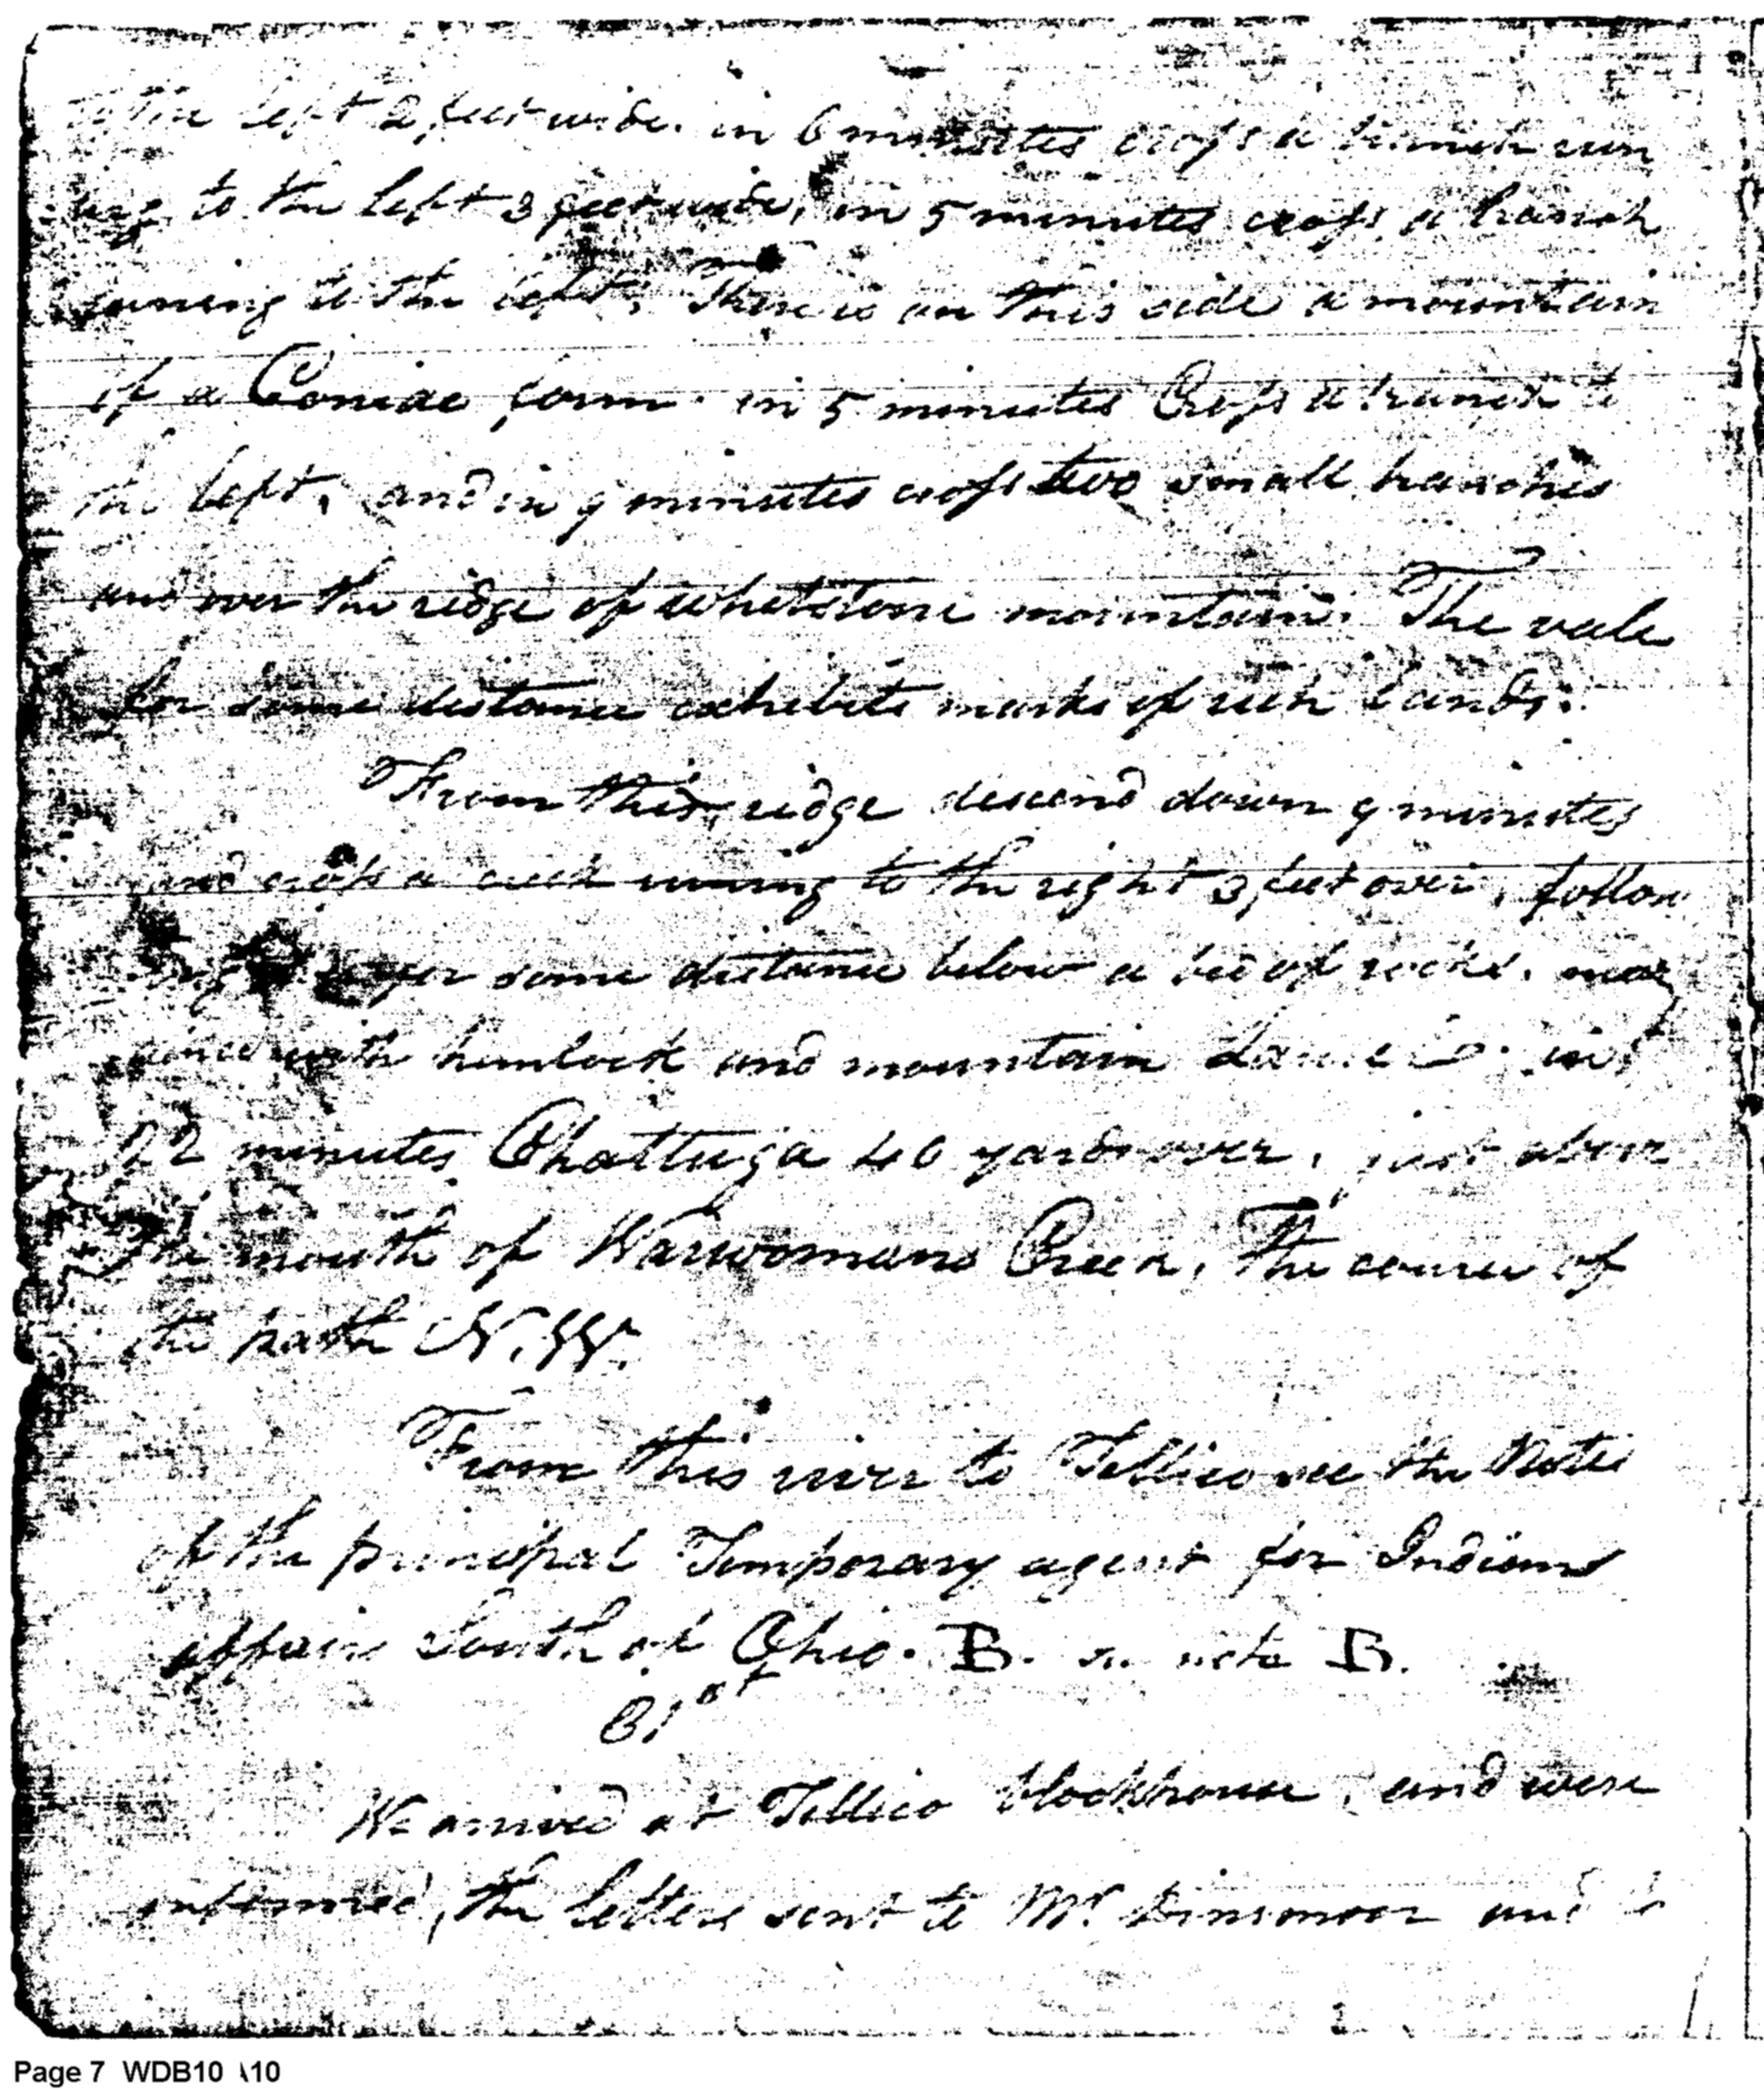 to the left 2 feet wide. in 6 minutes cross a branch run
ing to the left 3 feet wide, in 5 minutes cross a branch
runing to the left. There is on this side a mountain
of a Coniac form. in 5 minutes Cross a branch to
the left, and in 9 minutes cross two small branches
and over the ridge of whetstone mountain. The vale
for some distance exhibits marks of rich lands.
From this ridge descend down 9 minutes
and cross a creek runing to the right 3 feet over, follow
some distance below a bed of rocks.
with hemlock and mountain in
22 minutes Chattuga 40 yards over, just above
the mouth of Warwomans Creek, The course of
the path N.W.
From this river to Tellico see the Notes
of the principal Temporary agent for Indian
affairs South of Ohio. B. note B.
31st
We arrived at Tellico blockhouse, and were
informed, the letters sent to Mr. Dinsmoor and
Page 7 WDB10 \10